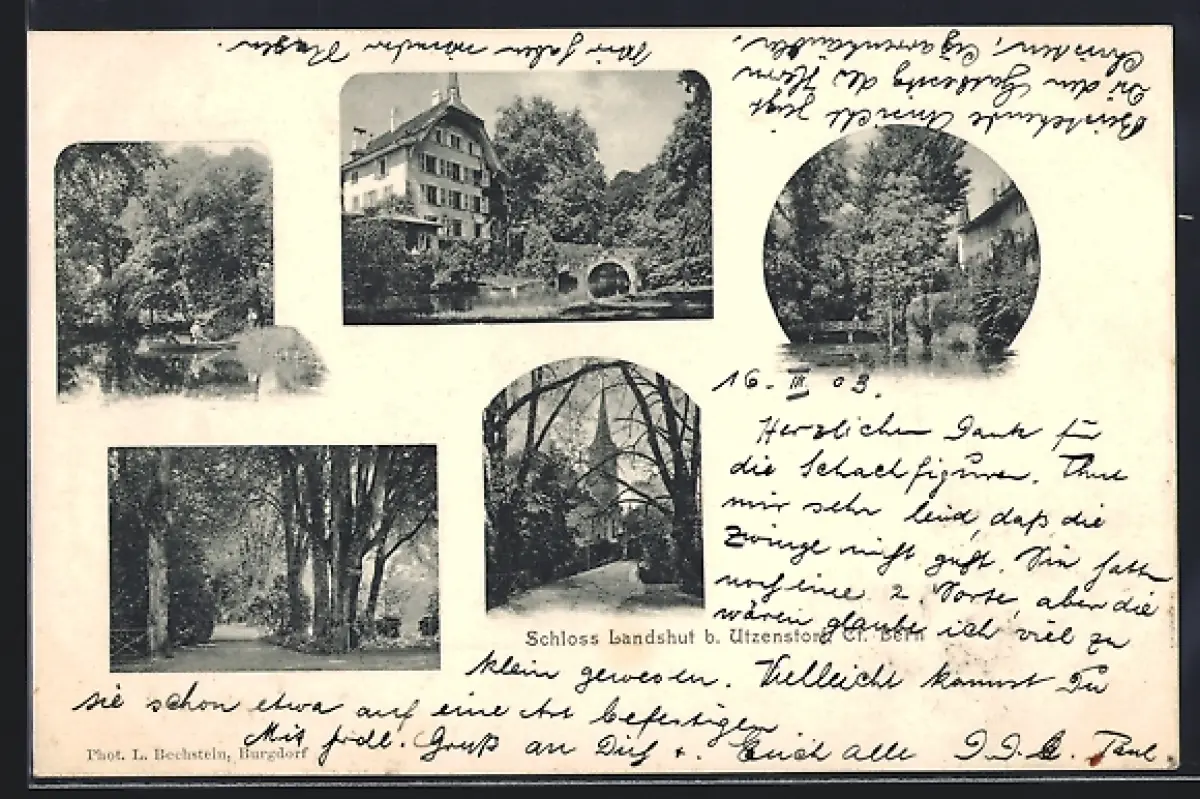 16. III. 03.
Herzlichen Dank für
die Schachfiguren. Thut
mir sehr leid, daß die
Zwinge nicht paßt. Sie hatten
noch eine 2. Sorte, aber die
wären glaube ich viel zu
klein gewesen. Vielleicht kannst Du
sie schon etwa auf eine Art befestigen
Mit frdl. Gruß an Dich + Euch alle Paul.
Beistehende Ansicht zeigt
Dir den Besitz des Herrn
Christen, Cigarrenhändler.
Wir haben wieder Regen.
Schloss Landshut b. Utzenstorf, Ct. Bern
Phot. L. Bechstein, Burgdorf